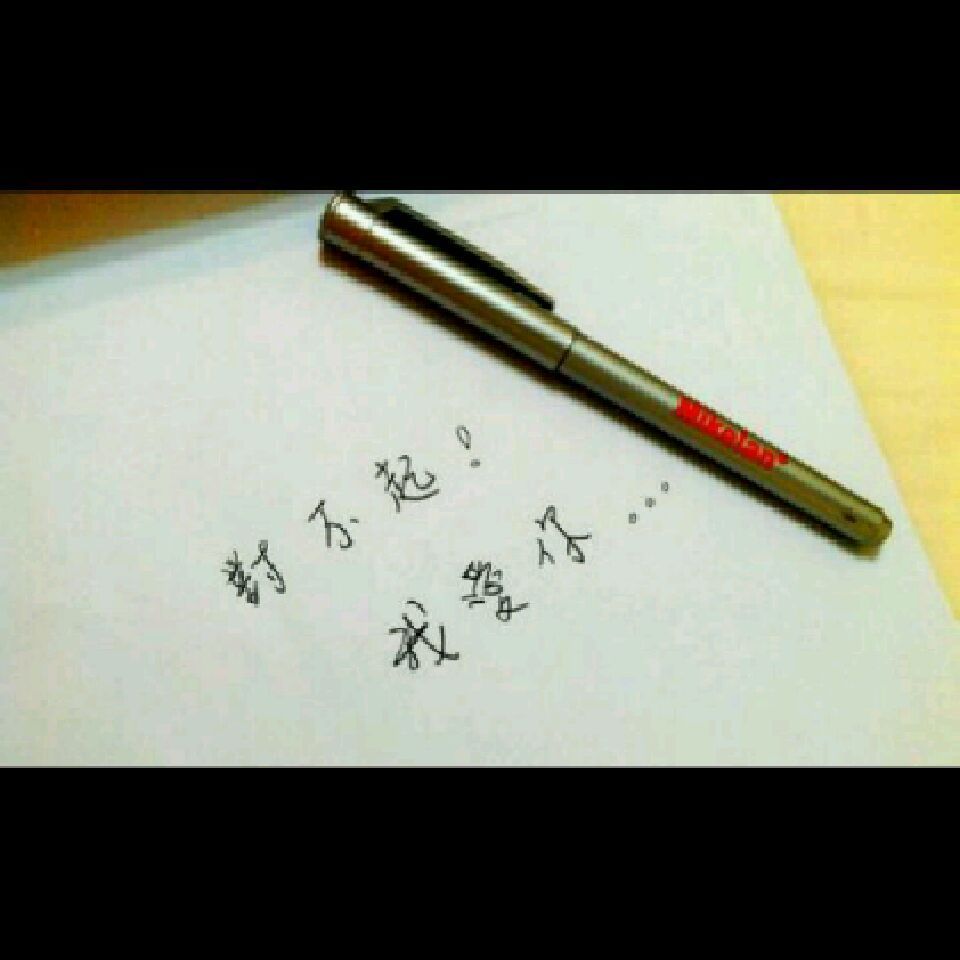 對不起!
我愛你...